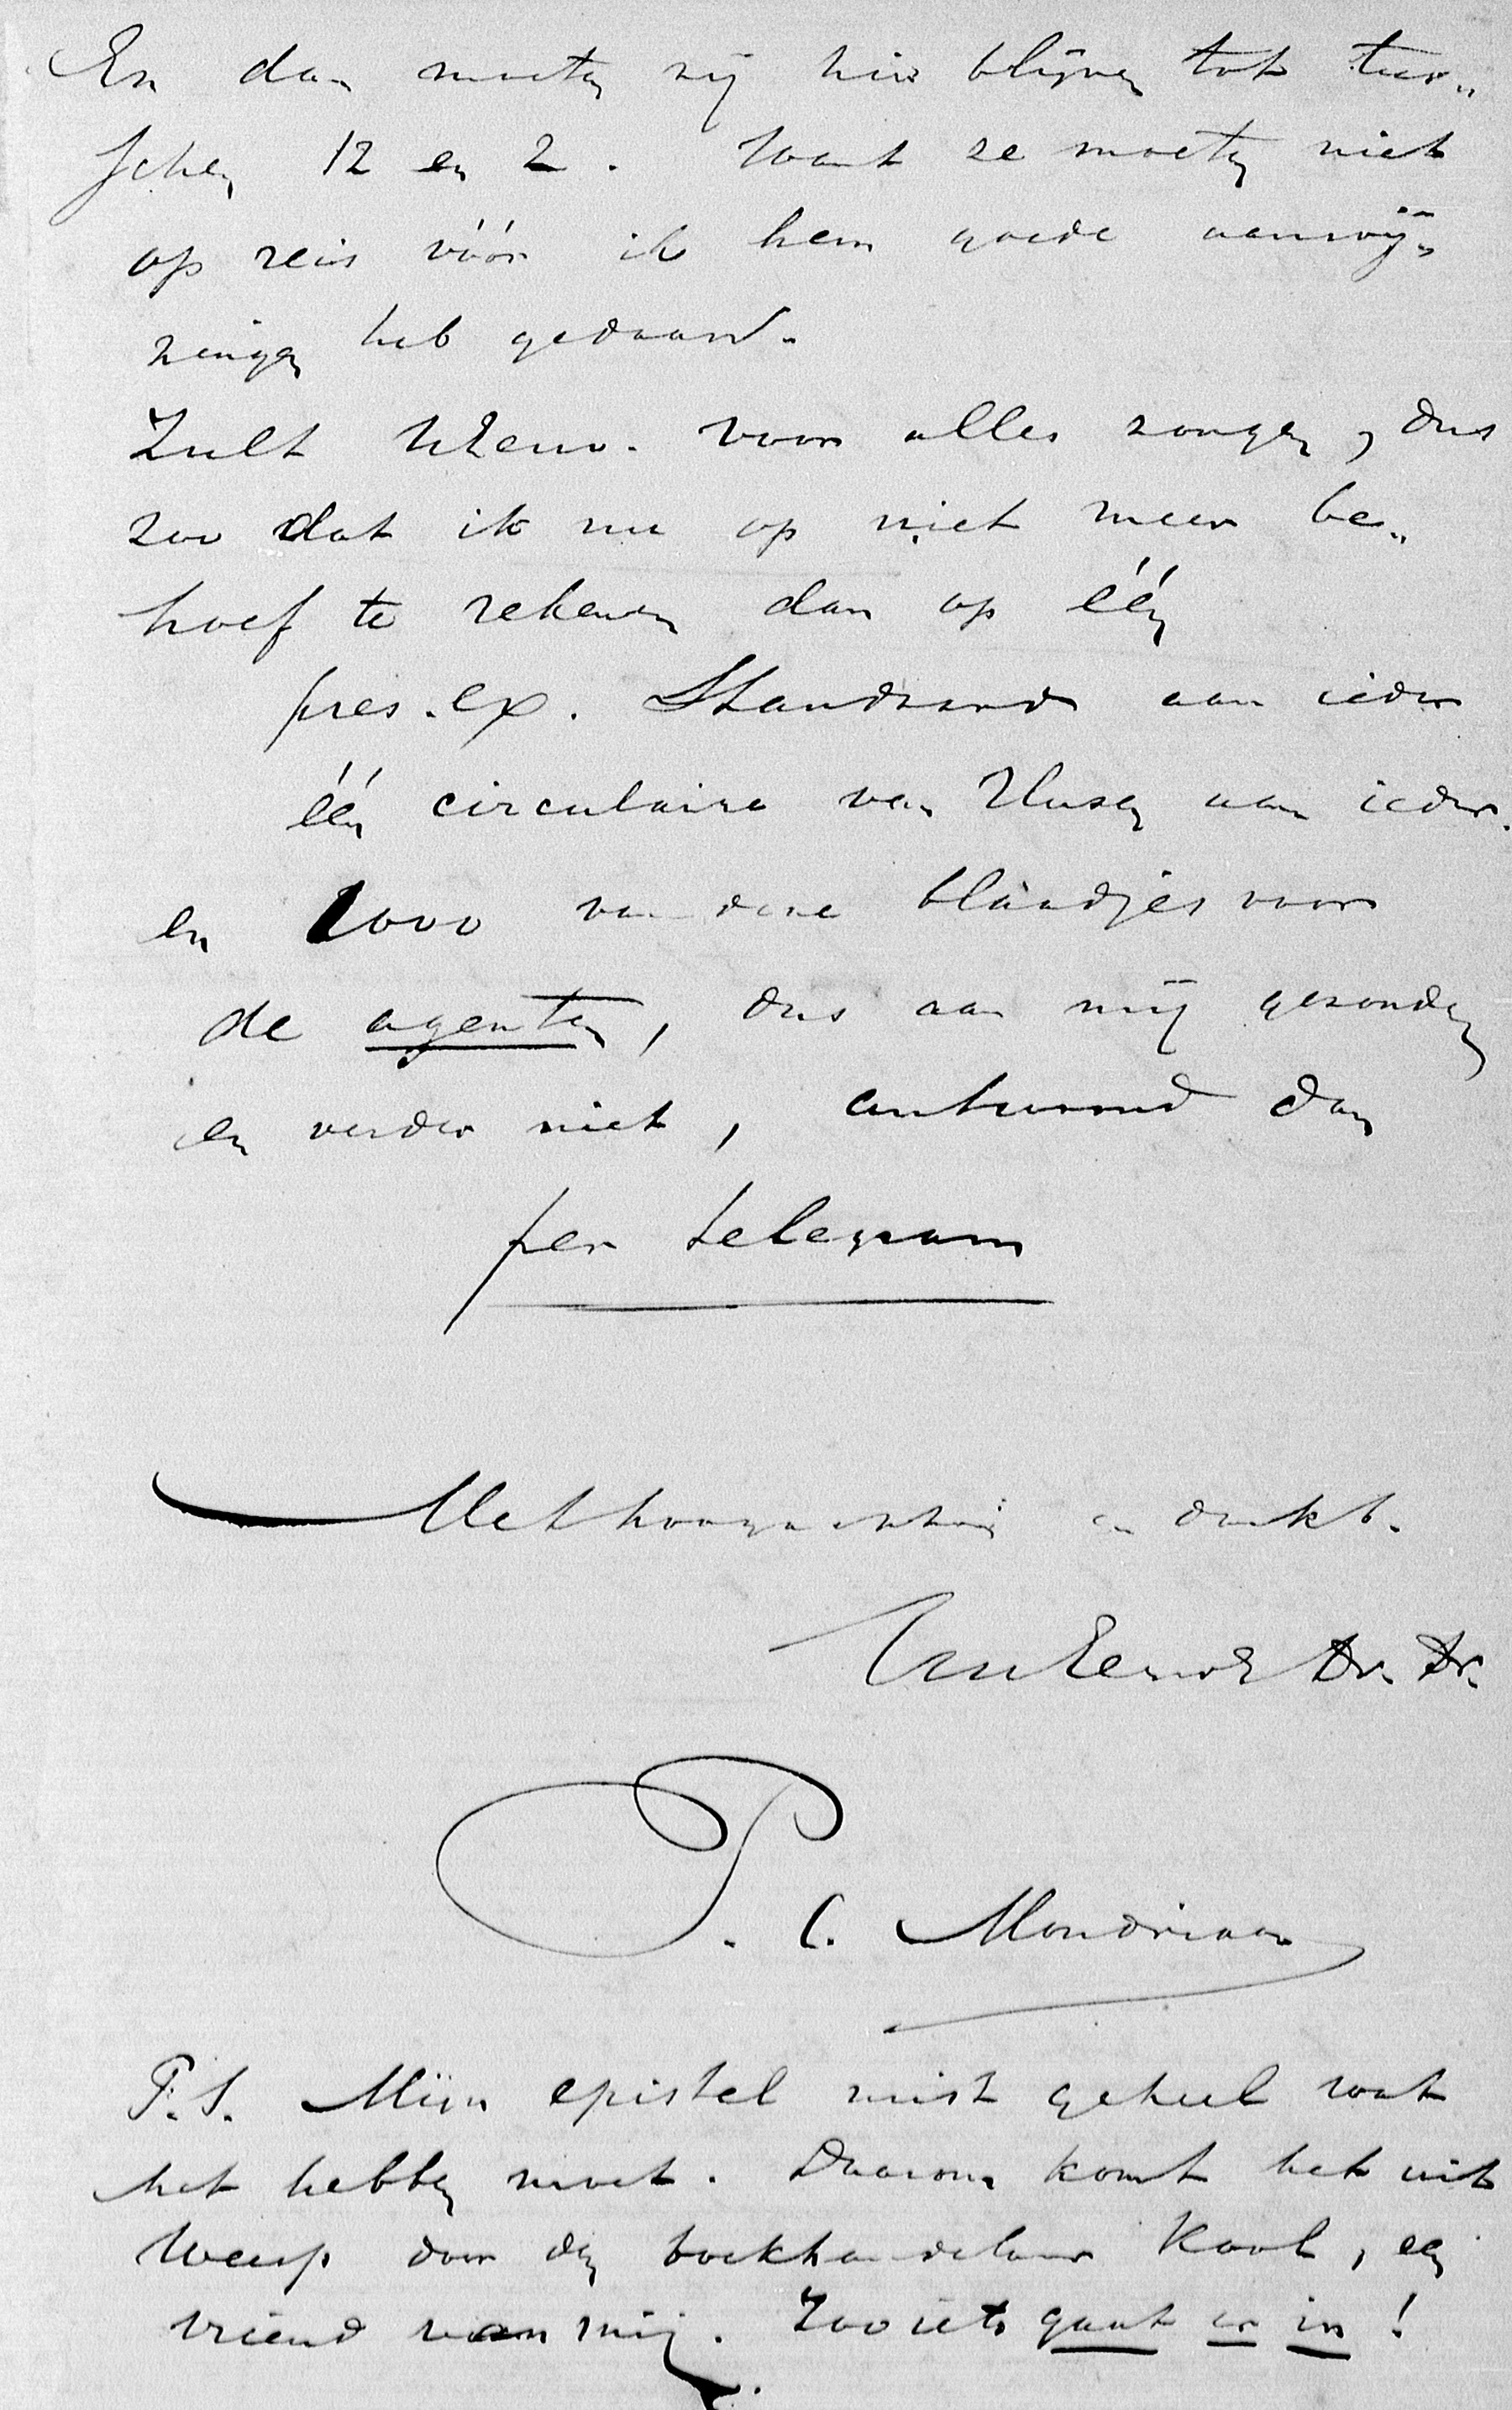 En dan moeten zij hier blijven tot tus„
schen 12 en 2. Want ze moeten niet
op reis vóór ik hem goede aanwij„
zingen heb gedaan.
Zult UEerw. voor alles zorgen, dus
zoo dat ik nu op niet meer be„
hoef te rekenen dan op één
pres. ex. Standaard aan ieder
één circulaire van Husen aan ieder.
en 1000 van deze blaadjes voor
de agenten, dus aan mij gezonden
en verder niet, antwoord dan
per telegram
Met hoogachting en dankb.
UwEerwE Dr. Dr.
P. C. Mondriaan
P.S. Mijn epistel mist geheel wat
het hebben moet. Daarom komt het uit
Weesp door den boekhandelaar Kool, een
vriend van mij. Zoo iets gaat er in!